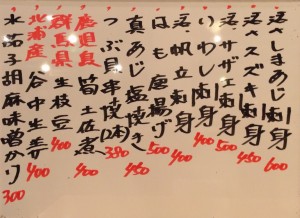 活しまあじ刺身 600
活スズキ刺身 450
活サザエ刺身 500
いわし刺身 400
活帆立刺身 400
はも唐揚げ 500
真あじ塩焼き 450
つぶ貝串焼(1本) 380
鹿児島産 筍土佐煮 400
群馬県産 生枝豆 400
北浦産 谷中生姜 400
水茄子胡麻味噌かけ 300